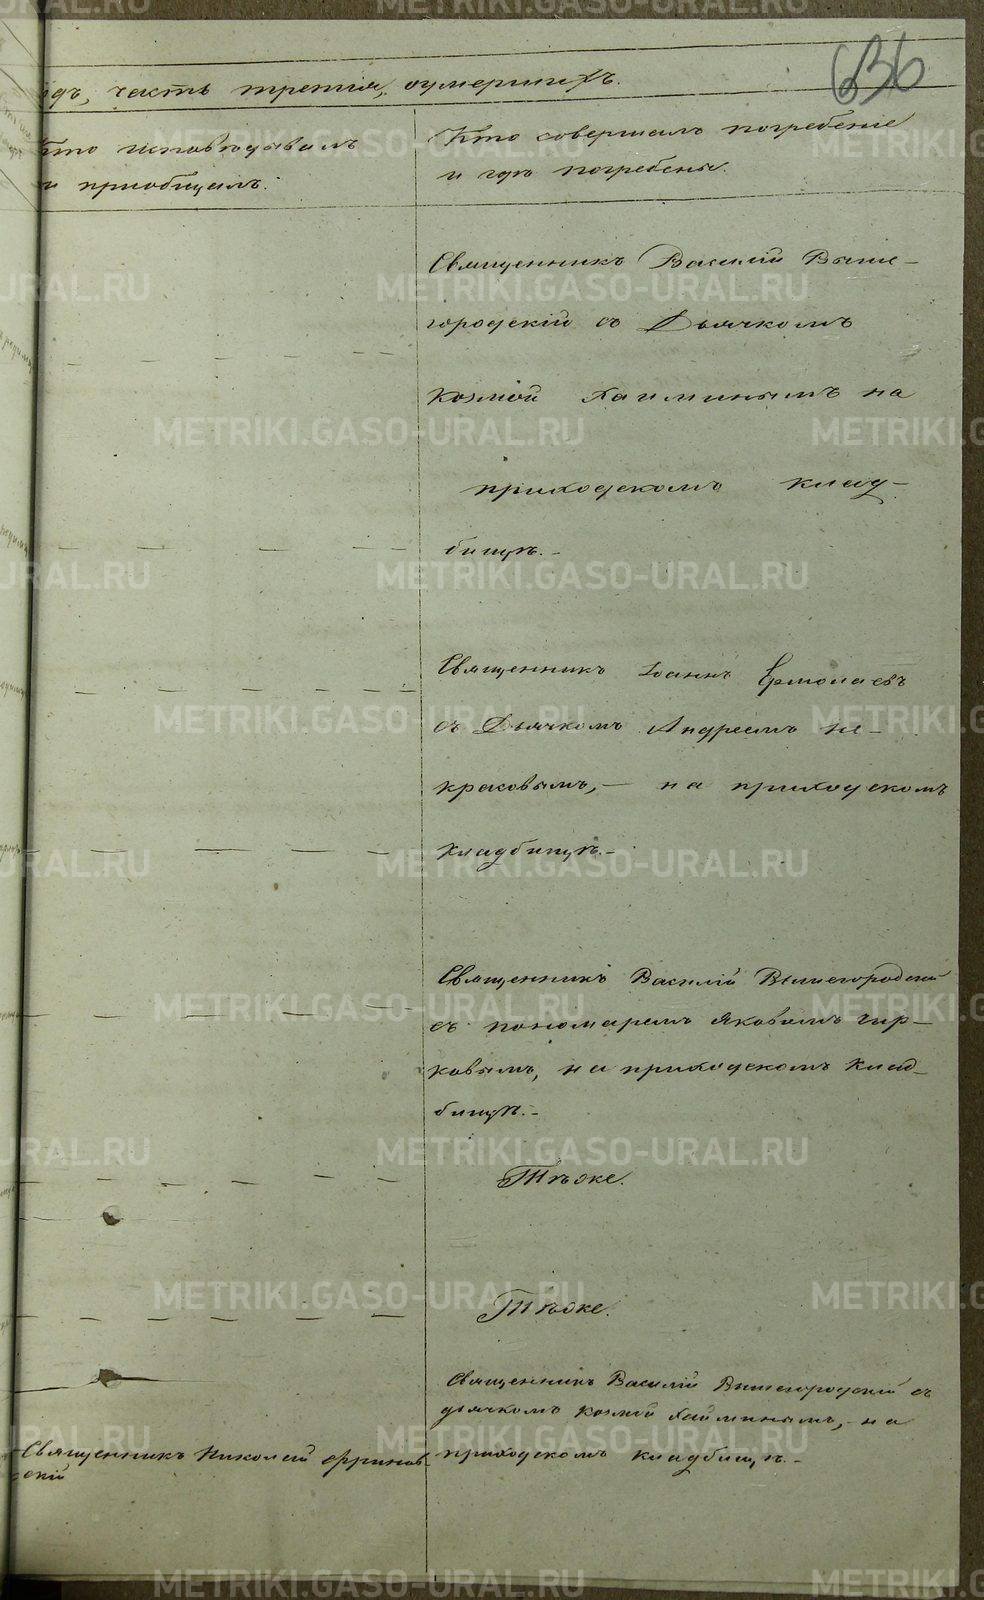 636
одъ, часть третія, оумершихъ.
Кто исповѣдывалъ
и пріобщалъ.
Кто совершалъ погребеніе
и гдѣ погребены.
Священникъ Василій Выше-
городскій съ Дьячкомъ
Козмой Хаиминымъ на
приходскомъ клад-
бищѣ.-
Священникъ Іоаннъ Ермолаевъ
съ Дьячкомъ Андреемъ Не-
красовымъ,- на приходскомъ
кладбищѣ.-
Священникъ Василій Вышегородскій
съ пономаремъ Яковомъ Чир-
ковымъ, на приходскомъ клад-
бищѣ.-
Тѣже.
Тѣже.
Священникъ Василій Вышегородскій съ
дьячкомъ Козмой Хайминымъ,- на
приходскомъ кладбищѣ.-
Священникъ Николай
скій
METRIKI.GASO-URAL.RU